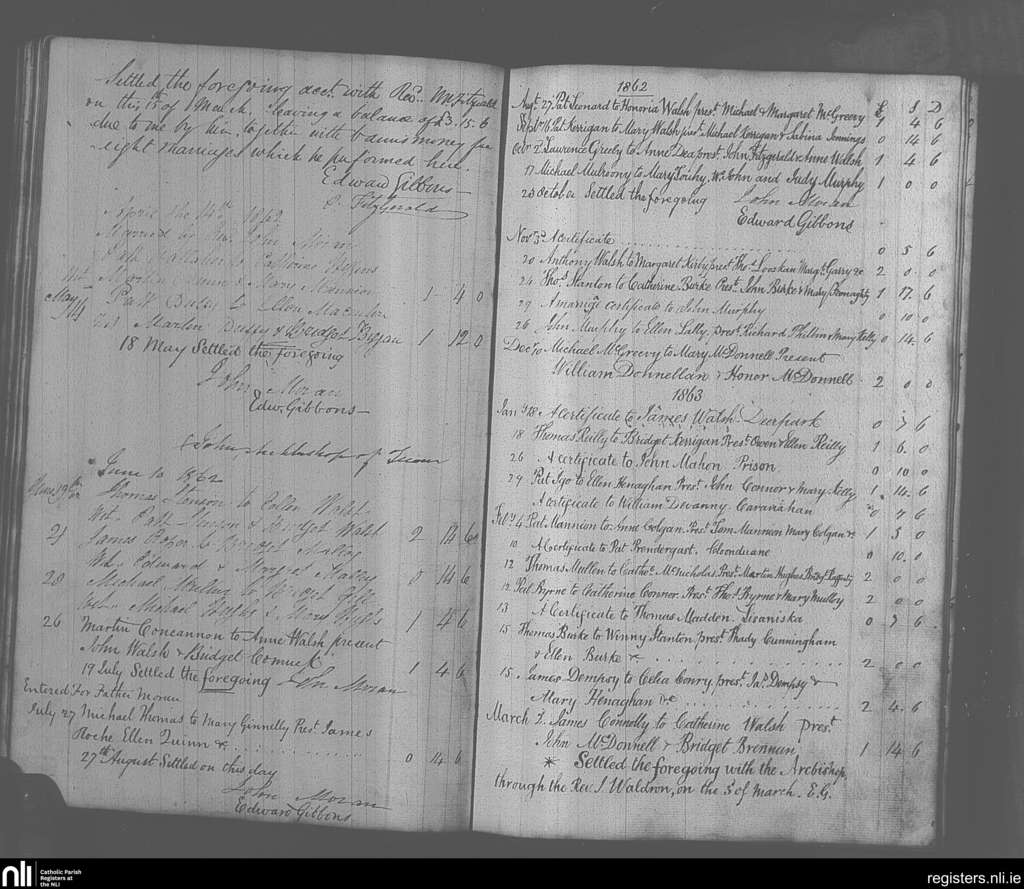 Settled the foregoing acct. with Revd. Wm Fitzgerald
on this 15th of March. leaving a balance of £3.15.6
due to me by him, together with banns money for
eight marriages which he performed here.
Edward Gibbons
Fitzgerald
April the 14th 1862
Married by Rev. John Moran
Patt to Catherine
Wit. & Mary Mannion 1 4 0
May Patt to Ellen
14 Wit Martin & Bridget Biggan 1 12 0
18 May Settled the foregoing
John Moran
Edw. Gibbons
+ John Archbishop of Tuam
June 10 1862
June 19th Thomas to Ellen Walsh
Wit. Patt & Bridget Walsh 2 14 6
21 James Roper to Bridget Malley
Wit. Edward & Margret Malley 0 14 6
20 Michael to
Wit. Michael & Mary 1 4 6
26 Martin Concannon to Anne Walsh present
John Walsh & Bridget 1 4 6
19 July Settled the foregoing John Moran
Entered For Father Moran
July 27 Michael Thomas to Mary Ginnelly Prest. James
Roche Ellen Quinn &c 0 14 6
27th August Settled on this day
John Moran
Edward Gibbons
1862
£ S D
Augt. 27. Pat Leonard to Honoria Walsh prest. Michael & Margaret McGreevy 1 4 6
Sept. 16 Pat Kerrigan to Mary Walsh prest. Michael Kerrigan & Sabina Jennings 0 14 6
Octr 2. Laurence Greely to Anne Dea prest. John Fitzgerald & Anne Walsh 1 4 6
17 Michael Mulroony to Mary Touhy, Wt. John and Judy Murphy 1 0 0
20 October Settled the foregoing John Moran
Edward Gibbons
Novr 3d A certificate 0 5 6
20 Anthony Walsh to Margaret Kirby prest Thos. Looskan Margt. Garry &c 2 0 0
24 Thos. Stanton to Catherine Burke Prest. John Burke & Mary 1 17 6
29 A marriage certificate to John Murphy 0 10 0
26 John Murphy to Ellen Lally, prest. Richard Phillem Mary Kelly 0 14 6
Decr 10 Michael McGreevy to Mary McDonnell Present
William Donnellan & Honor McDonnell 2 0 0
1863
Jany 18 A certificate to James Walsh Deerpark 0 7 6
18 Thomas Reilly to Bridget Kerrigan Prest. Owen & Ellen Reilly 1 6 0
26 A certificate to John Mahon Prison 0 10 0
29 Pat Igo to Ellen Henaghan Prest. John Connor & Mary Kelly 1 14 6
A certificate to William Devanny Cavanahan 0 7 6
Feby 4 Pat Mannion to Anne Colgan Prest. Tom Mannion Mary Colgan &c 1 5 0
10 A Certificate to Pat Prendergast. Cloonduane 0 10 0
12 Thomas Mullen to Cathe. McNicholas Prest. Martin Hughes Bridgt Rafferty 2 0 0
12 Patt Byrne to Catherine Connor Prest. Thos. Byrne & Mary Mulloy 2 0 0
13 A Certificate to Thomas Maddon Lisaniska 0 7 6
15 Thomas Burke to Winny Stanton prest Thady Cunningham
& Ellen Burke &c 2 0 0
15. James Dempsy to Celia Conry prest. Jas. Dempsy &
Mary Henaghan &c 2 4 6
March 2. James Connolly to Catherine Walsh prest.
John McDonnell & Bridget Brennan 1 14 6
* Settled the foregoing with the Archbishop,
through the Rev. J. Waldron, on the 5 of March. E.G.
nli Catholic Parish
Registers at
the NLI
registers.nli.ie